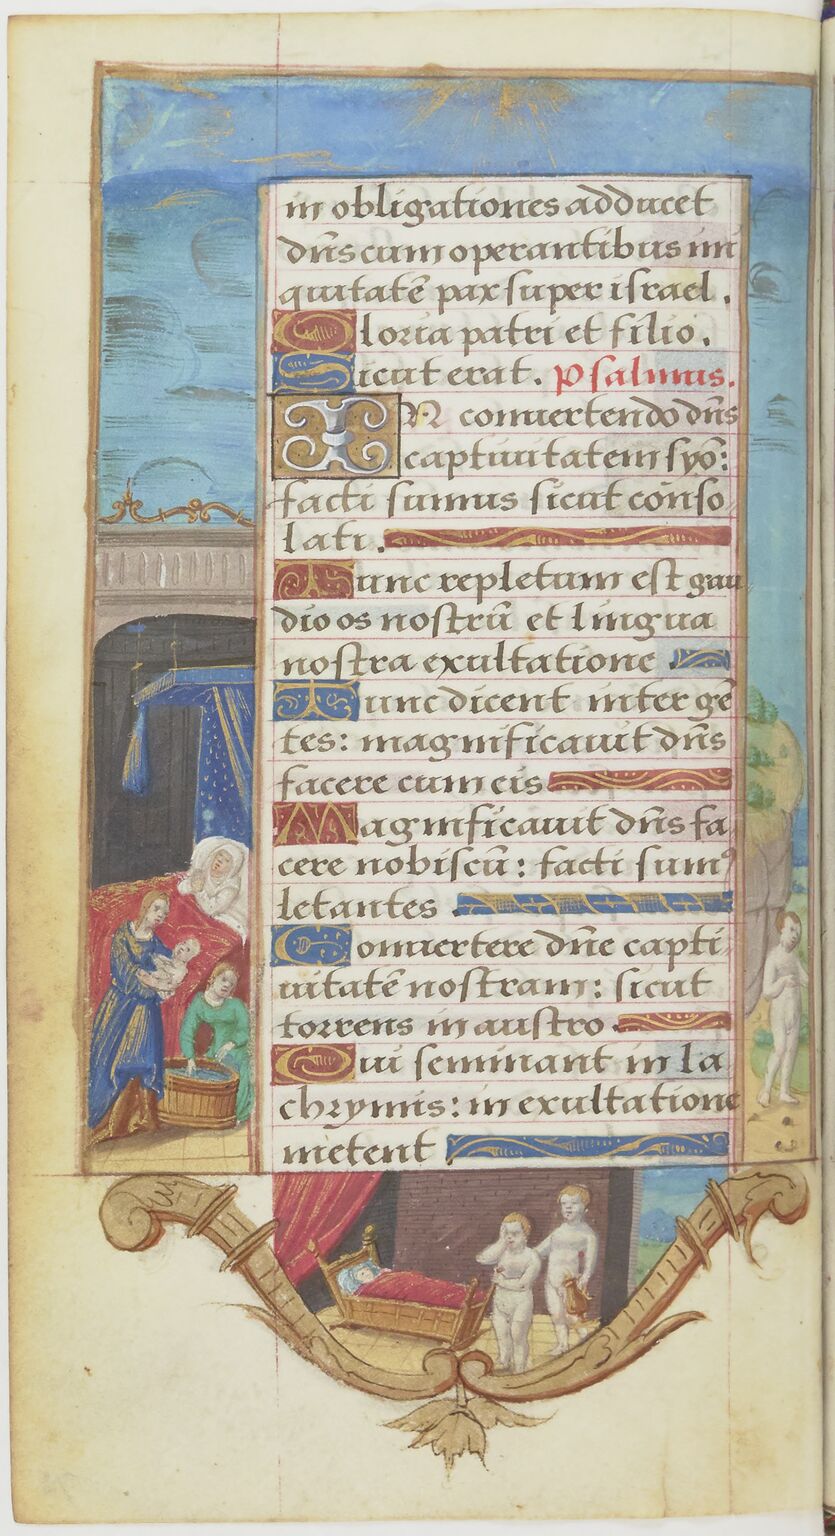 in obligationes adducet
dñs cum operantibus ini
quitatē pax super israel.
Gloria patri et filio.
Sicut erat. Psalmus.
IN convertendo dñs
captivitatem syō:
facti sumus sicut conso
lati.
Tunc repletum est gau
dio os nostrū et lingua
nostra exultatione
Tunc dicent inter gē
tes: magnificavit dñs
facere cum eis
Magnificavit dñs fa
cere nobiscū: facti sumꝰ
letantes.
Convertere dñe capti
vitatē nostram: sicut
torrens in austro.
Qui seminant in la
chrymis: in exultatione
metent.